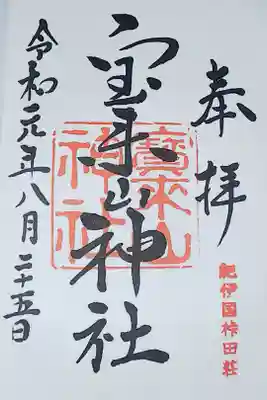 奉拝
紀伊国桛田荘
宝来山神社
寶来山神社
令和元年八月二十五日